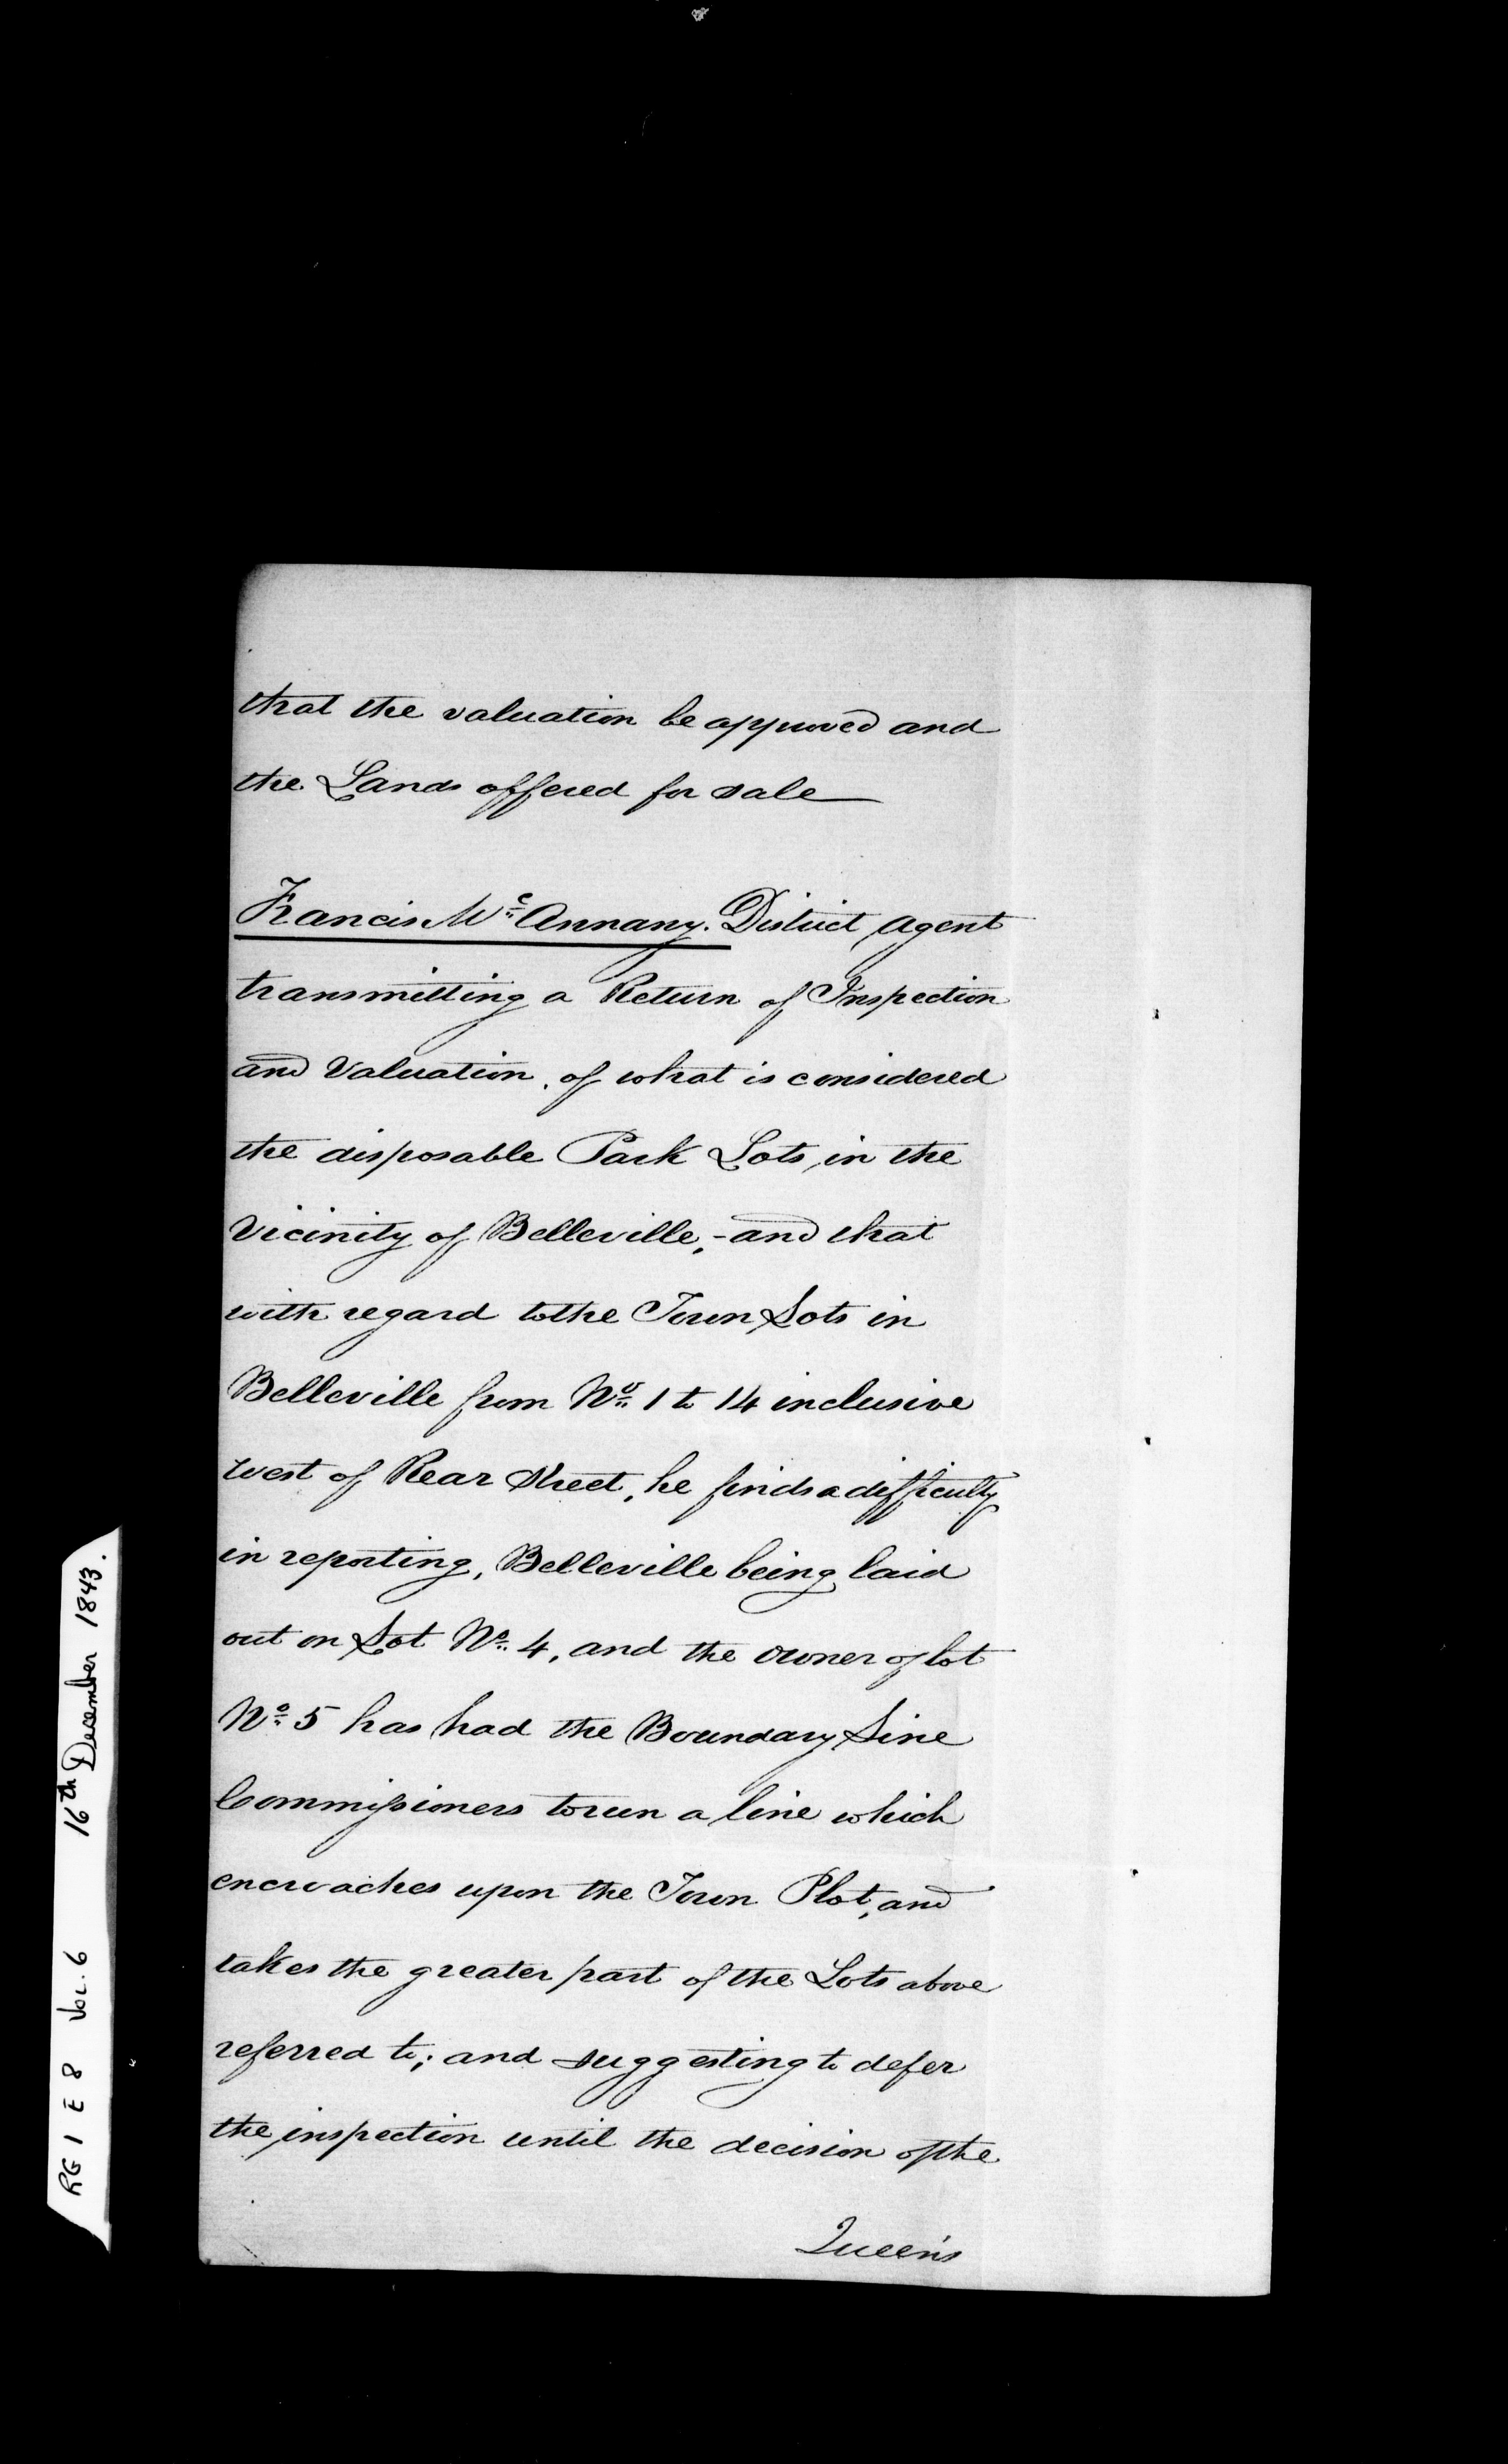 that the valuation be approved and
the Lands offered for sale
Francis Mc Annany. District Agent
transmitting a Return of Inspection
and Valuation, of what is considered
the disposable Park Lots, in the
Vicinity of Belleville, - and that
with regard to the Town Lots in
Belleville from No. 1 to 14 inclusive
west of Rear Street, he finds a difficulty
in reporting, Belleville being laid
out on Lot No. 4, and the owner of lot
No. 5 has had the Boundary Line
Commissioners to run a line which
encroaches upon the Town Plot, and
takes the greater part of the Lots above
referred to; and suggesting to defer
the inspection until the decision of the
Queen's
RG 1 E 8 Vol. 6 16th December 1843.